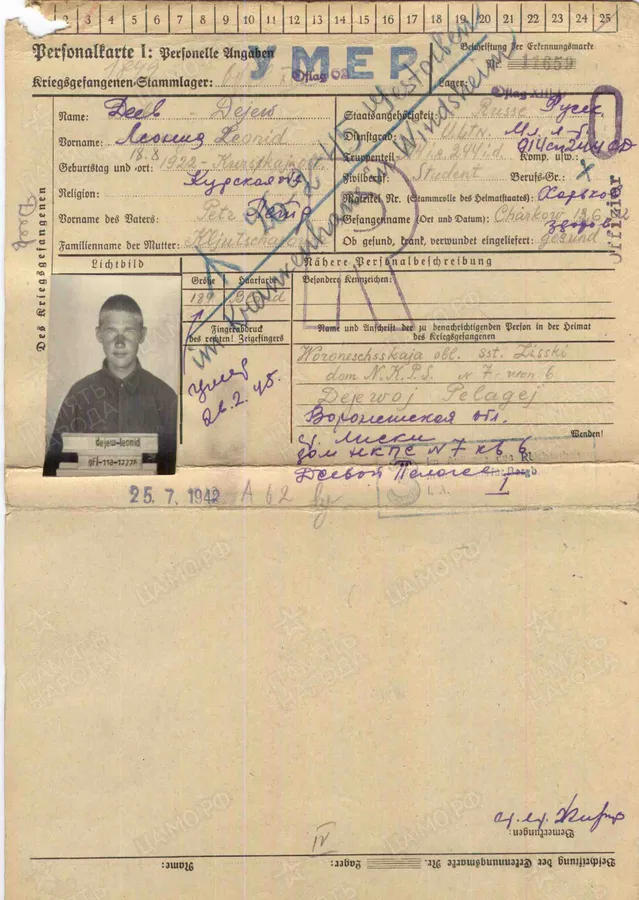 2 3 4 5 6 7 8 9 10 11 12 13 14 15 16 17 18 19 20 21 22 23 24 25
Personalkarte I: Personelle Angaben
УМЕР
Beschriftung der Erkennungsmarke
Nr. 11659
Kriegsgefangenen-Stammlager:
Oflag 62
Lager:
Oflag XIII
Des Kriegsgefangenen
Name: Деев - Dejew
Staatsangehörigkeit: Russe Русск
Vorname: Леонид Leonid
Dienstgrad:
Geburtstag und -ort: 18.8 1922-
Truppenteil: 244 i.d. Komp. usw.:
914 сп 244 СД
Курская
Zivilberuf: Student Berufs-Gr.:
Religion:
Matrikel Nr. (Stammrolle des Heimatstaates): Харьков
Vorname des Vaters: Petr Петр
Gefangenname (Ort und Datum): Charkow
Familienname der Mutter:
здоров
Ob gesund, krank, verwundet eingeliefert: gesund
Offizier
gestorben
im Krankenhaus in Windsheim
Lichtbild
Nähere Personalbeschreibung
Größe
Haarfarbe
Besondere Kennzeichen:
189
Blond
Fingerabdruck
des rechten! Zeigefingers
Name und Anschrift der zu benachrichtigenden Person in der Heimat
des Kriegsgefangenen
Woroneschsskaja obl. sst. Lisski
dom N.K.P.S. N 7-
умер
26.2.45.
Dejewoj Pelagej
Воронежская обл.
ст. Лиски
Wenden!
дом НКПС N7 кв 6
Деевой Пелагее
dejew-leonid
25. 7. 1942 A 62
IV
Bemerkungen:
Beschriftung der Erkennungsmarke Nr.
Lager:
Name:
ПАМЯТЬ НАРОДА
ЦАМО.РФ